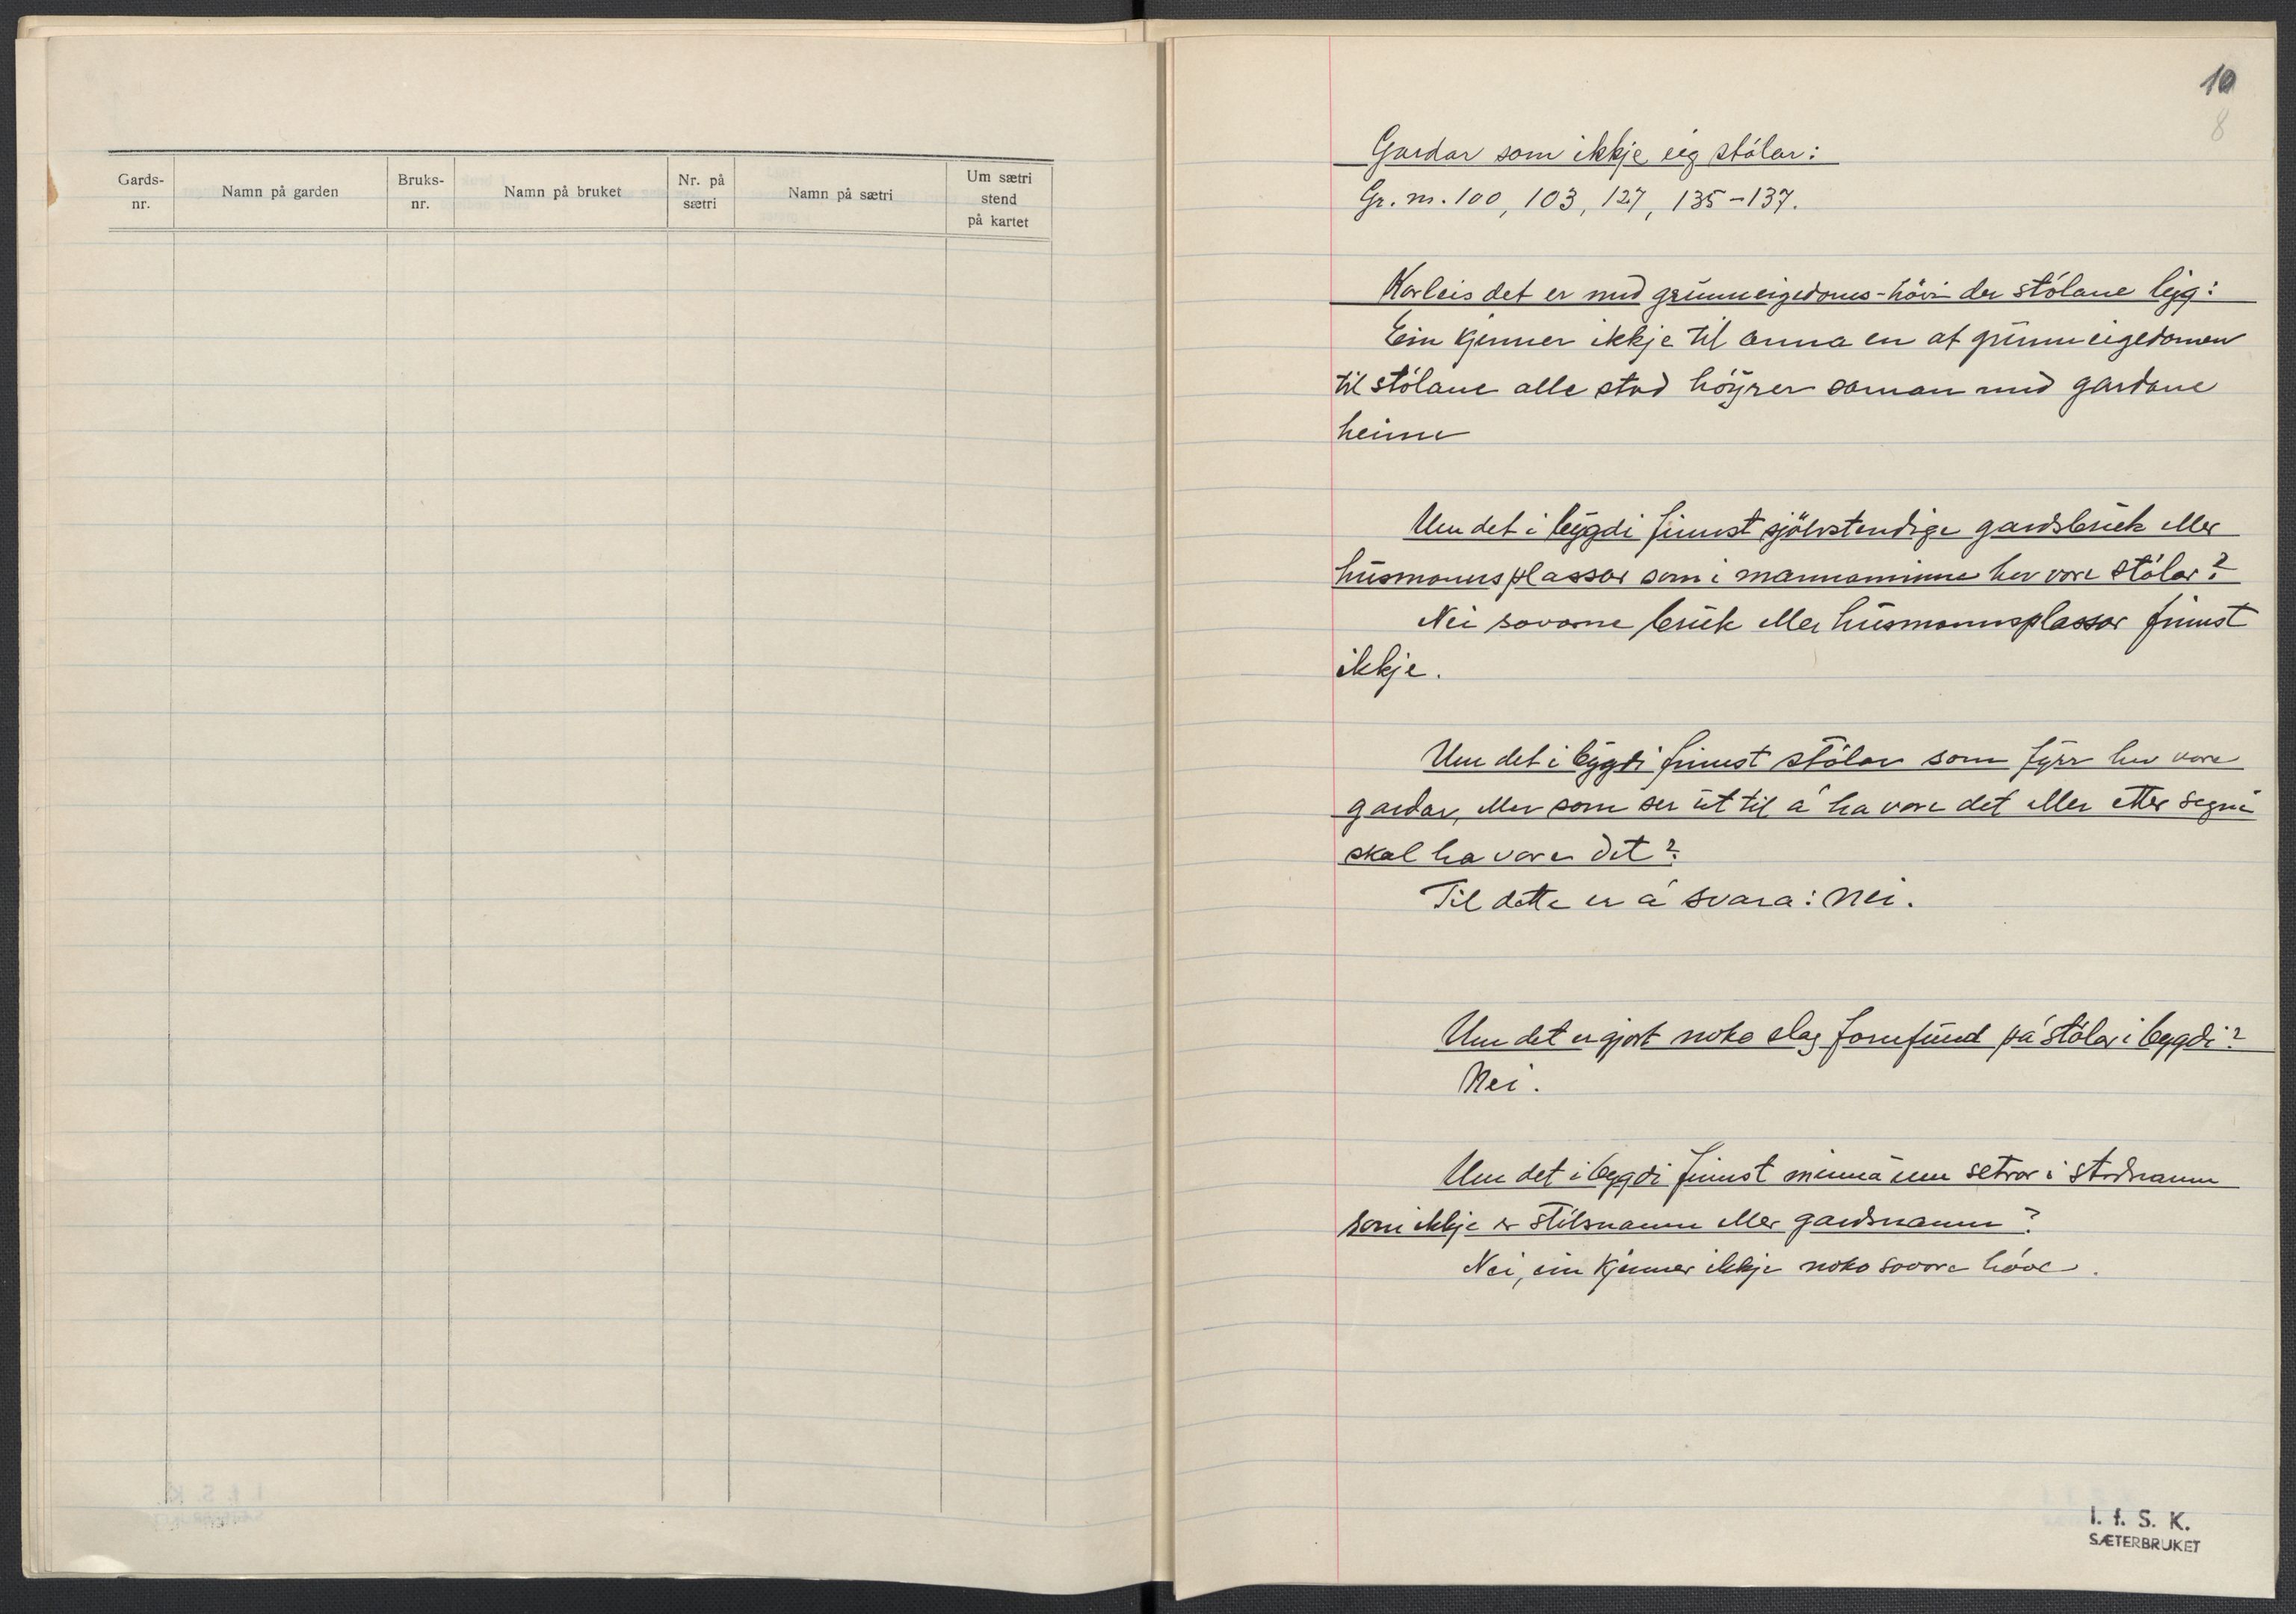 Gards-
nr.
Namn på garden
Bruks-
nr.
Namn på bruket
Nr. på
sætri
Namn på sætri
Um sætri
stend
på kartet
10
8
Gardar som ikkje eig stólar:
Gr. nr. 100, 103, 127, 135-137.
Korleis det er med grunneigedoms-hövi der stólane ligg:
Ein kjenner ikkje til anna en at grunneigedomen
til stólane alle stad höyrer saman med gardane
heime
Um det i bygdi finnst sjölvstendige gardsbruk eller
husmannsplassar som i mannaminne hev vore stólar?
Nei sovorne bruk eller husmannsplassar finnst
ikkje.
Um det i bygdi finnst stólar som fyrr hev vore
gardar, eller som ser ut til å ha vore det eller etter segni
skal ha vore det?
Til dette er å svara: Nei.
Um det er gjort noko slag fornfund på stólar i bygdi?
Nei.
Um det i bygdi finnst minne um setrar i stadnamn
som ikkje er stólsnamn eller gardsnamn?
Nei, ein kjenner ikkje noko sovore
I. f. S. K.
SÆTERBRUKET